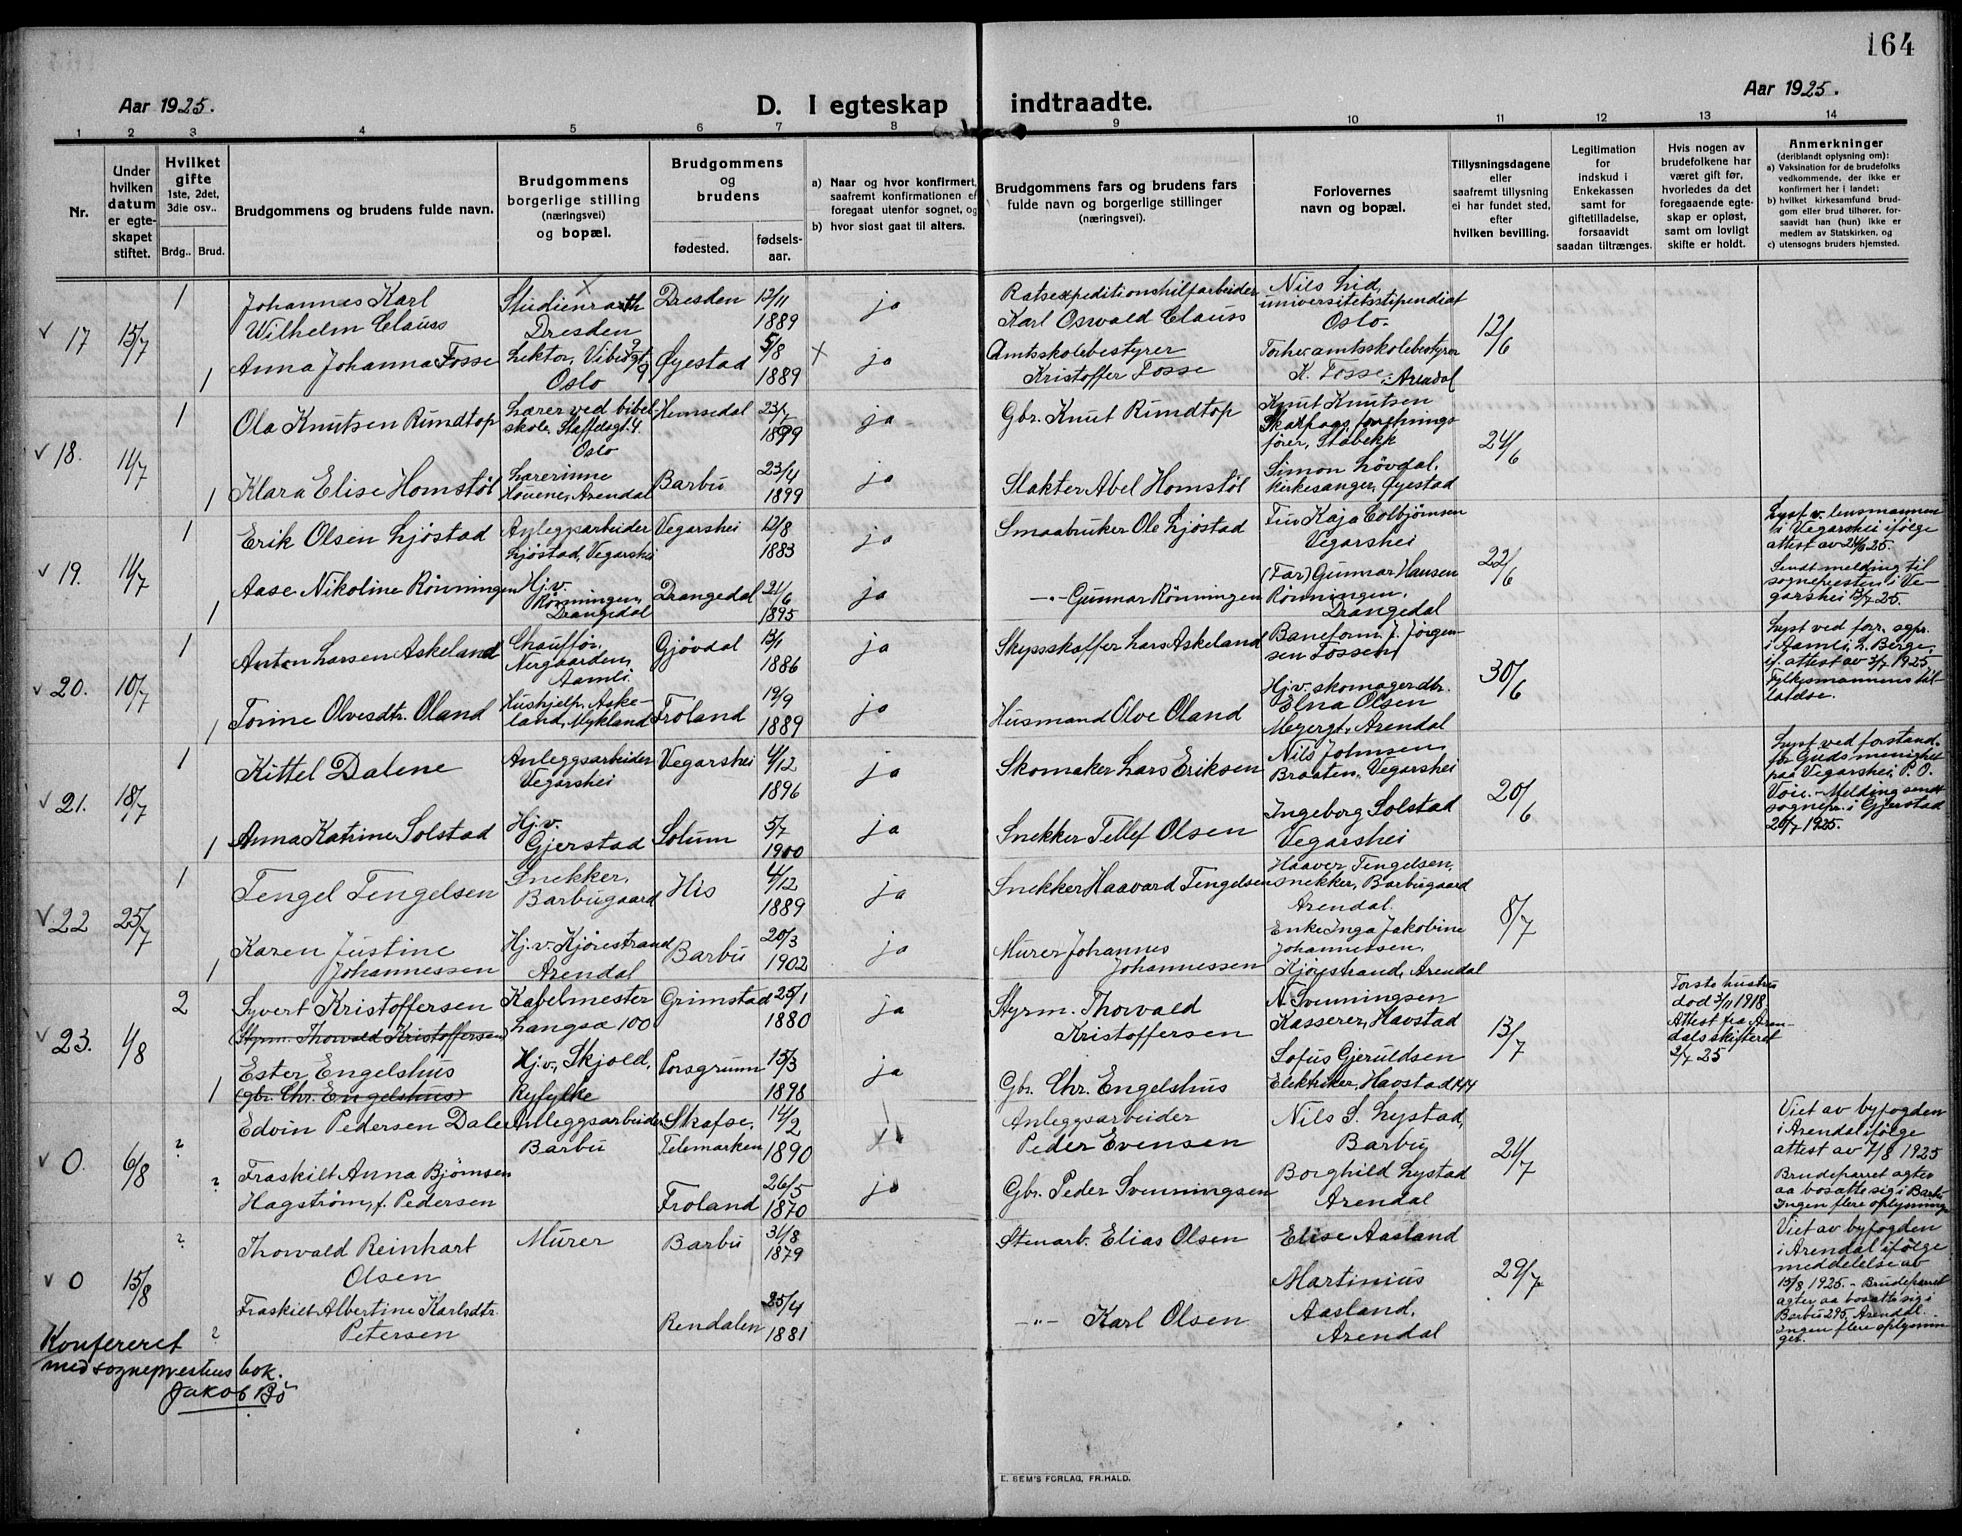 164
Aar 1925.
D. I egteskap indtraadte.
Aar 1925.
1 2 3 4 5 6 7 8 9 10 11 12 13 14
Nr.
Under hvilken datum er egte-skapet stiftet.
Hvilket gifte 1ste, 2det, 3die osv..
Brdg.. Brud.
Brudgommens og brudens fulde navn.
Brudgommens borgerlige stilling (næringsvei) og bopæl.
Brudgommens og brudens
fødested.
fødsels-aar.
a) Naar og hvor konfirmert, saafremt konfirmationen er foregaat utenfor sognet, og
b) hvor sidst gaat til alters.
Brudgommens fars og brudens fars fulde navn og borgerlige stillinger (næringsvei).
Forlovernes navn og bopæl.
Tillysningsdagene eller saafremt tillysning ei har fundet sted, efter hvilken bevilling.
Legitimation for indskud i Enkekassen samt for giftetilladelse, forsaavidt saadan tiltrænges.
Hvis nogen av brudefolkene har været gift før, hvorledes da det foregaaende egte-skap er opløst, samt om lovligt skifte er holdt.
Anmerkninger (deriblandt oplysning om):
a) Vaksination for de brudefolks vedkommende, der ikke er konfirmert her i landet;
b) hvilket kirkesamfund brud-gom eller brud tilhører, for-saavidt han (hun) ikke er medlem av Statskirken, og
c) utensogns bruders hjemsted.
v 17 15/7
1 Johannes Karl Wilhelm Clauss
Studienrath Dresden
Dresden 12/11 1889 ja
Ratsexpeditionshilfarbeider Karl Oswald Clauss
Nils Lid, universitetsstipendiat Oslo.
12/6
1 Anna Johanna Fosse
Lektor, Vibesgt 9 Oslo
Øyestad 5/8 1889 x ja
Amtsskolebestyrer Kristoffer Fosse
Forher. amtsskolebestyrer K. Fosse, Arendal
v 18. 11/7
1 Ola Knutsen Rundtop
Lærer ved bibel-skole, Staffeldsgt 4. Oslo
Hemsedal 23/7 1899 ja
Gbr. Knut Rundtop
Knut Knutsen Skarpaas, forretnings-fører, Stabekk
24/6
1 Klara Elise Homstøl
Lærerinne Houene, Arendal
Barbu 23/4 1899 ja
Slakter Abel Homstøl
Simon Løvdal, kirkesanger, Øyestad
v 19. 11/7
1 Erik Olsen Ljøstad
Anleggsarbeider Ljøstad, Vegarshei
Vegarshei 12/8 1883 ja
Smaabruker Ole Ljøstad
Fru Kaja Colbjørnsen Vegarshei
22/6
Lyst v. lensmannen i Vegarshei ifølge attest av 24/6 25.
1 Aase Nikoline Rønningen
Hj.v. Rønningen, Drangedal
Drangedal 21/6 1895 ja
-"- Gunnar Rønningen
(Far) Gunnar Hansen Rønningen, Drangedal
Sendt melding til sognepresten i Ve-garshei 13/7 25.
v 20. 10/7
1 Anton Larsen Askeland
Chauffør, Nergaarden, Aamli.
Gjøvdal 13/1 1886 ja
Skyssskaffer Lars Askeland
Baneform. J. Jørgen-sen Fossen
30/6
Lyst ved forr. sgpr. i Aamli, L. Berge, if. attest av 3/7 1925, Fylkesmannens til-latelse.
1 Torine Olvesdtr. Oland
Hushjelp, Aske-land, Mykland
Froland 19/9 1889 ja
Husmand Olve Oland
Hj.v. skomagerdtr. Elna Olsen Meyergt. Arendal
v 21. 18/7
1 Kittel Dalene
Anleggsarbeider Vegarshei
Vegarshei 4/12 1896 ja
Skomaker Lars Eriksen
Nils Johnsen, Braaten, Vegarshei
20/6
Lyst ved forstand. for Guds menighet paa Vegarshei, P. O. Voie. - Melding sendt sognepr. i Gjerstad 20/7 1925.
1 Anna Katrine Solstad
Hj.v. Gjerstad
Solum 5/7 1900 ja
Snekker Tellef Olsen
Ingeborg Solstad Vegarshei
v 22 25/7
1 Tengel Tengelsen
Snekker, Barbugaard
His 4/12 1889 ja
Snekker Haavard Tengelsen
Haaver Tengelsen, snekker, Barbugaard Arendal.
8/7
1 Karen Justine Johannessen
Hj.v. Kjørestrand Arendal
Barbu 20/3 1902 ja
Murer Johannes Johannessen
Enke Inga Jakobine Johannessen, Kjørestrand, Arendal
v 23. 1/8
2 Syvert Kristoffersen
(Styrm. Thorvald Kristoffersen)
Kabelmester Langsæ 100
Grimstad 25/1 1880 ja
Styrm. Thorvald Kristoffersen
N. Svenningsen Kasserer, Havstad
13/7
Første hustru død 3/11 1918 Attest fra Aren-dals skifteret 2/7 25
1 Ester Engelshus
(gbr. Chr. Engelshus)
Hj.v., Skjold, Ryfylke
Porsgrunn 15/3 1898 ja
Gbr. Chr. Engelshus
Sofus Gjeruldsen Elektriker, Havstad
v 0. 6/8
? Edvin Pedersen Dale
Anleggsarbeider Barbu
Skafse, Telemarken 14/2 1890
Anleggsarbeider Peder Evensen
Nils S. Lystad, Barbu
24/7
Viet av byfogden i Arendal ifølge attest av 7/8 1925
? Fraskilt Anna Bjørnsen Hagstrøm, f. Pedersen
Froland 26/5 1870 ja
Gbr. Peder Svenningsen
Borghild Lystad Arendal
Brudeparret agter aa bosætte sig i Barbu Ingen flere oplysninger
v 0 15/8
? Thorvald Reinhart Olsen
Murer
Barbu 31/8 1879
Stenarb. Elias Olsen
Elise Aasland
29/7
Viet av byfogden i Arendal ifølge meddelelse av 15/8 1925. - Brudeparret agter aa bosætte sig i Barbu 295, Arendal. Ingen flere oplysnin-ger.
? Fraskilt Albertine Karlsdtr. Petersen
Rendalen 25/4 1881
-"- Karl Olsen
Martinius Aasland, Arendal
Konfereret
med sogneprestens bok.
Jakob Bö
E. SEM'S FORLAG, FR.HALD.